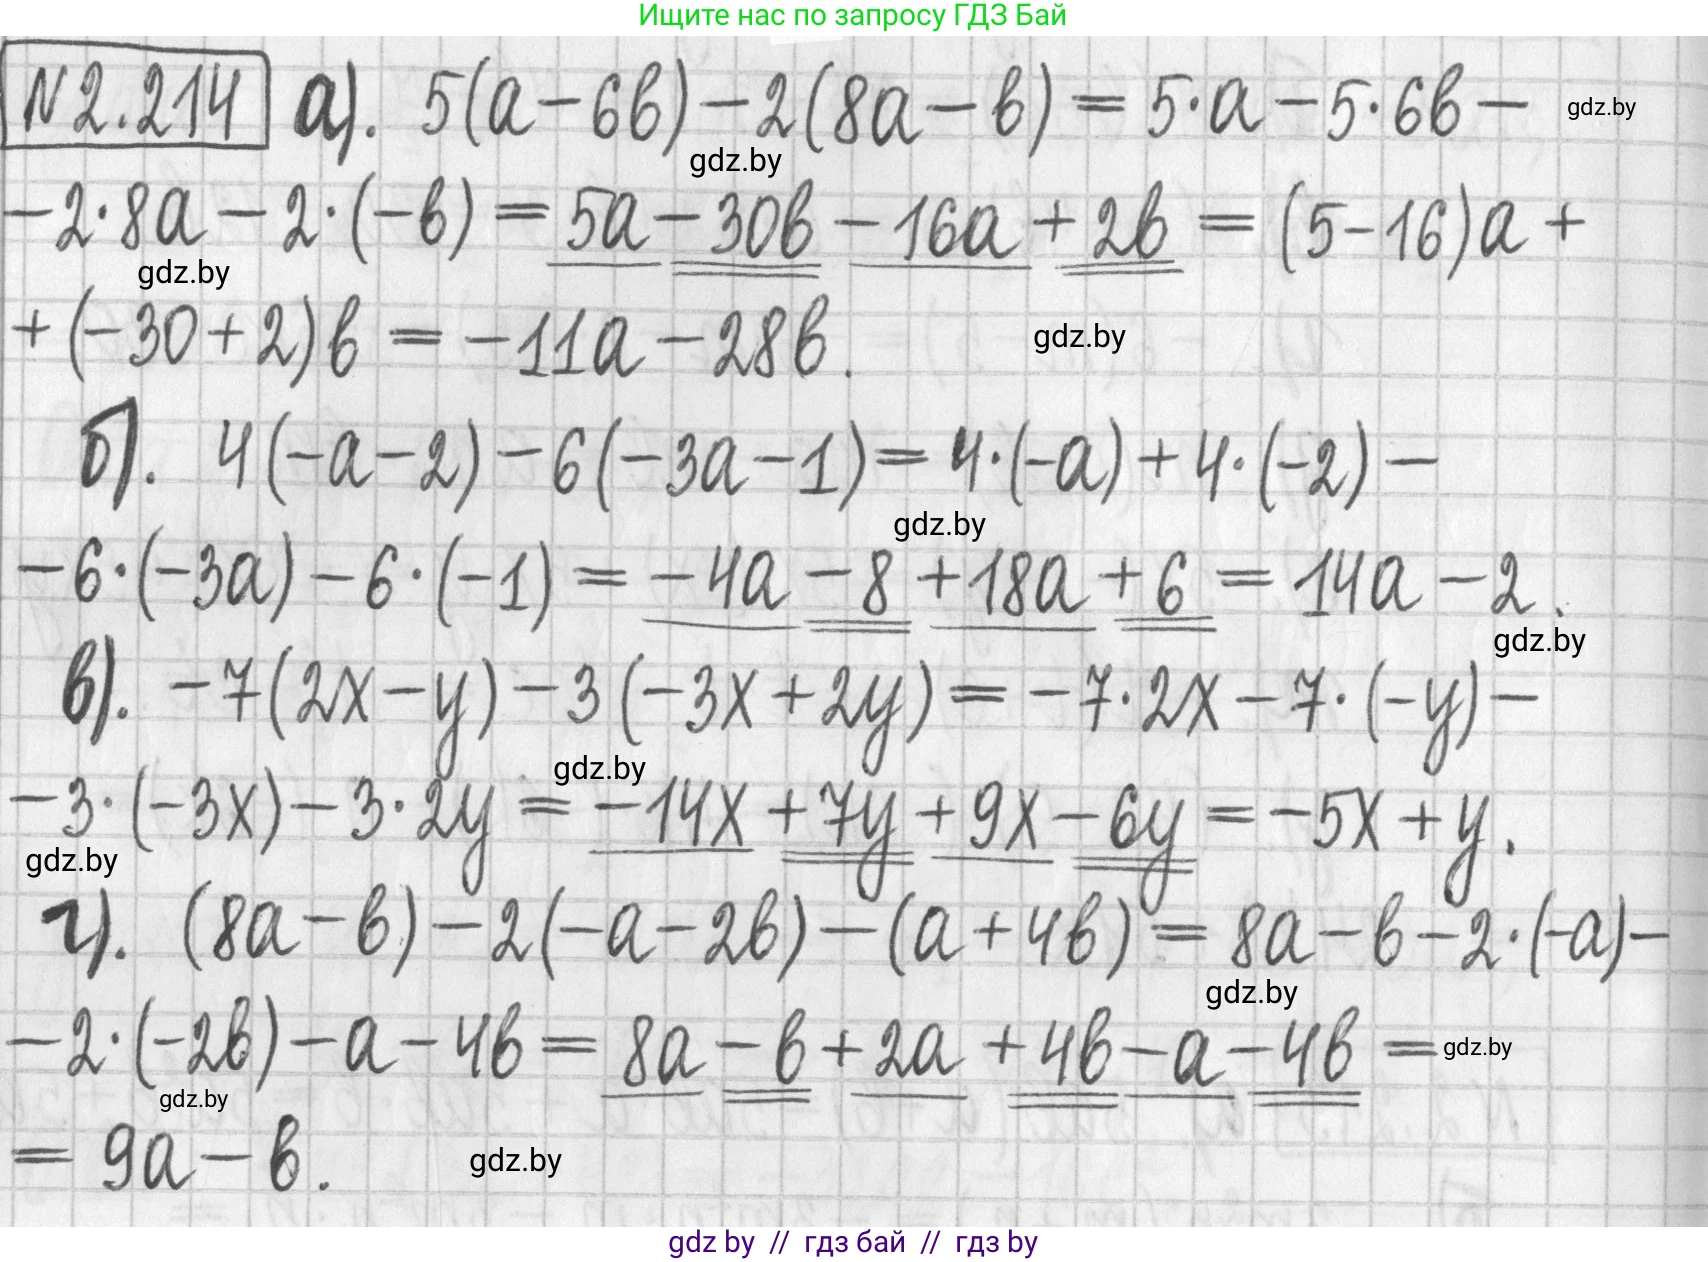 Ищите нас по запросу ГДЗ Бай
N2.214 а). 5(a-6в)-2(8a-в)=5·a-5·6в- gdz.by
gdz.by
-2·8a-2·(-в)=5a-30в-16a+2в=(5-16)a+
gdz.by
+(-30+2)в=-11a-28в. gdz.by
б). 4(-a-2)-6(-3a-1)=4·(-a)+4·(-2)-
gdz.by
-6·(-3a)-6·(-1)=-4a-8+18a+6=14a-2.
gdz.by
в). -7(2x-y)-3(-3x+2y)=-7·2x-7·(-y)-
gdz.by
-3·(-3x)-3·2y=-14x+7y+9x-6y=-5x+y.
gdz.by
г). (8a-в)-2(-a-2в)-(a+4в)=8a-в-2·(-a)-
gdz.by
-2·(-2в)-a-4в=8a-в+2a+4в-a-4в= gdz.by
gdz.by
=9a-в. gdz.by
gdz by // гдз бай // гдз by